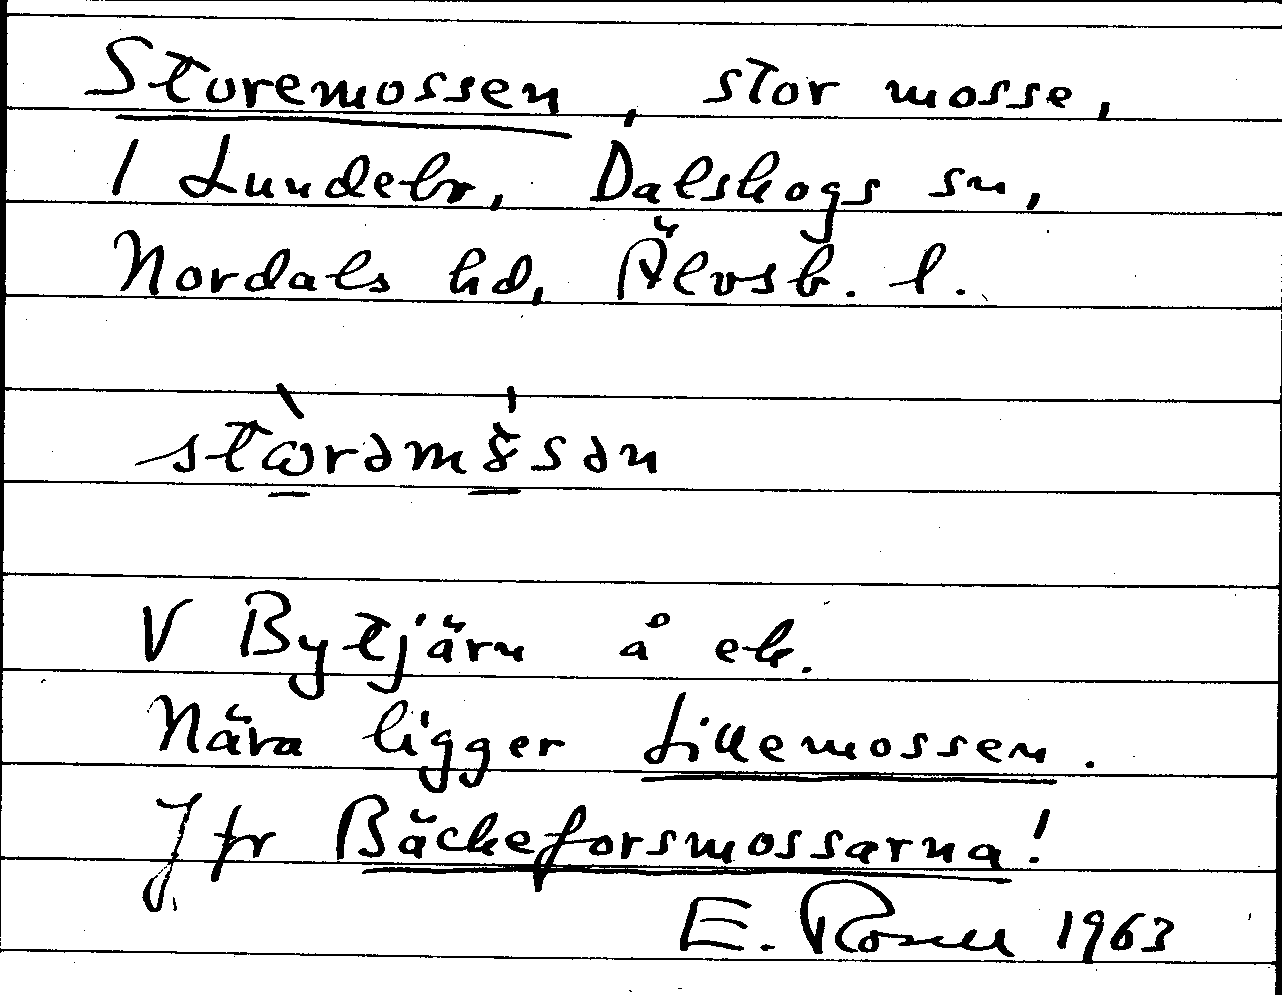 Storemossen, stor mosse,
1 Lundebr, Dalskogs sn,
Nordals hd, Älvsb. l.
V Bytjärn å ek.
Nära ligger Lillemossen.
Jfr Bäckeforsmossarna!
E. 1963